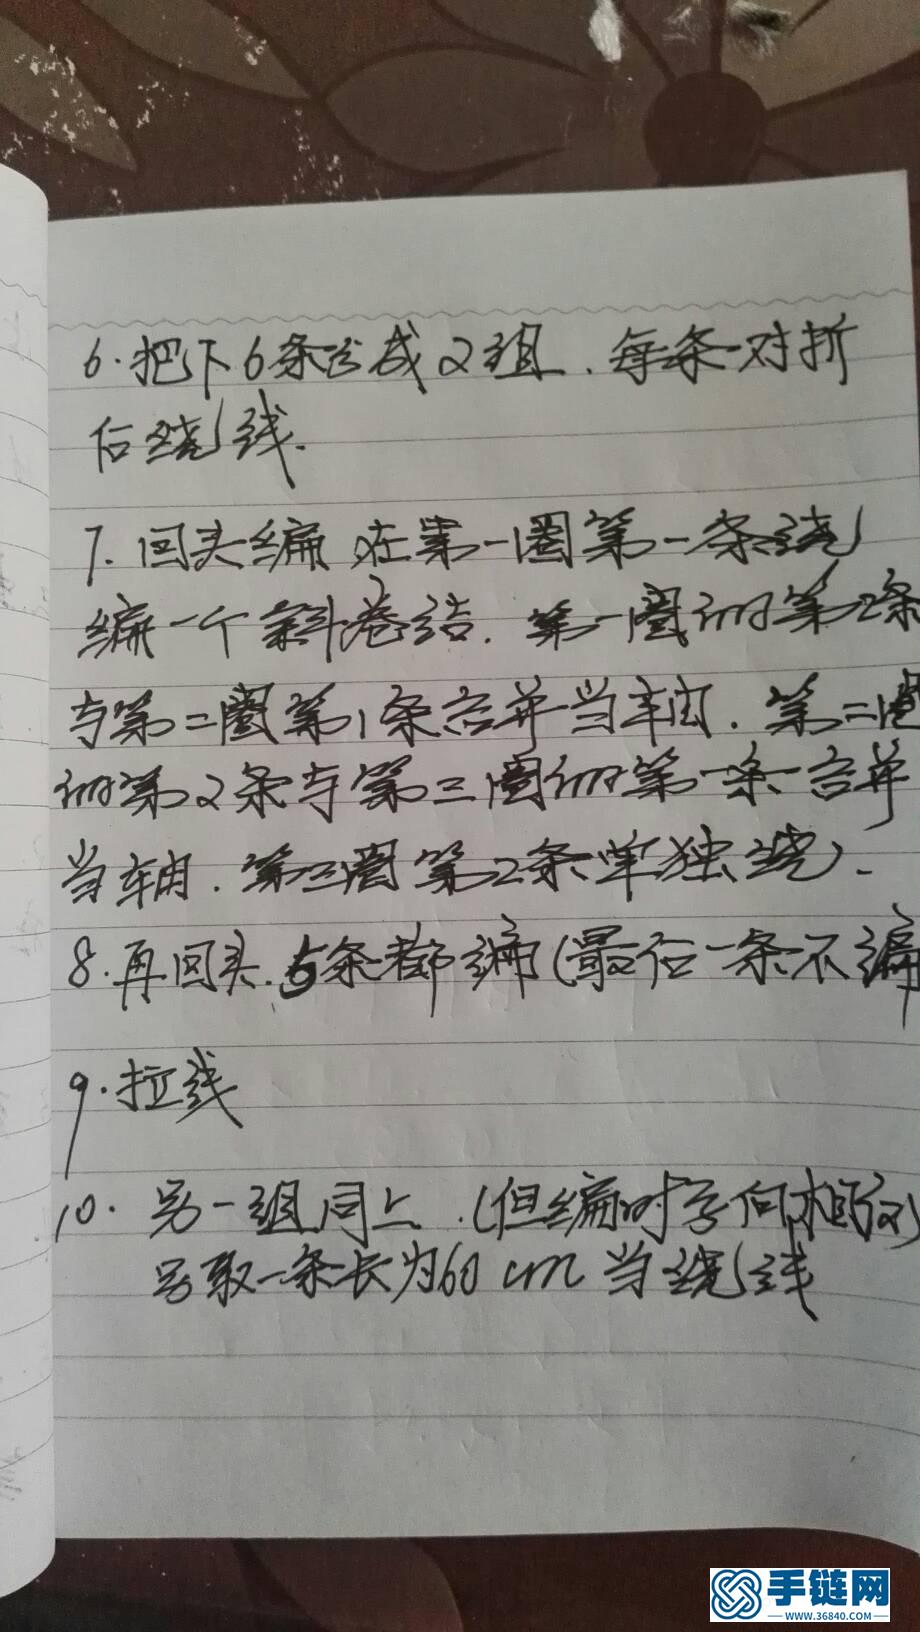 6.把下6条分成2组.每条对折
后绕线.
7.回头编 在第一圈第一条绕
编一个斜卷结.第一圈的第2条
与第二圈第1条合并当轴.第二圈
的第2条与第三圈的第一条合并
当轴.第三圈第2条单独绕.
8.再回头.5条都编(最后一条不编
9.拉线
10.另一组同上.(但编时方向相反)
另取一条长为60cm当绕线
手链网
WWW.36840.COM